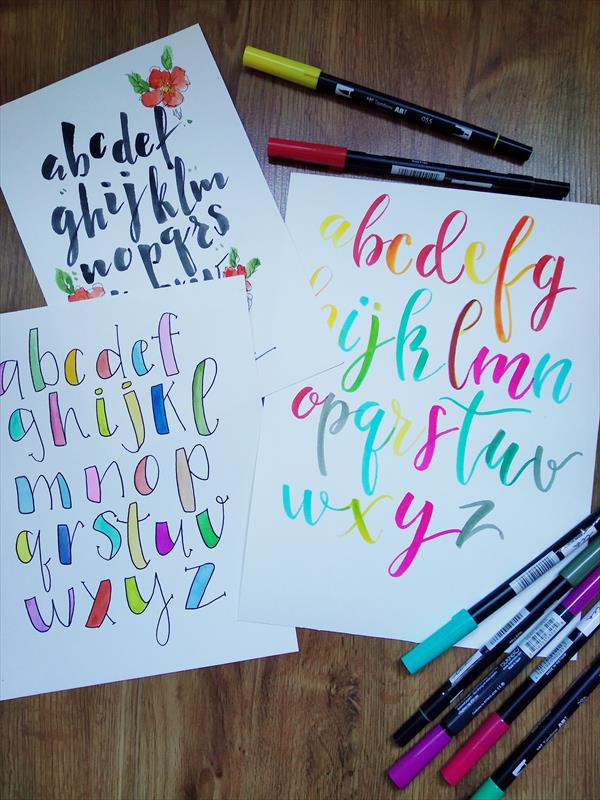 abcdef
ghijklm
nopqrs
abcdefg
hijklmn
opqrstuv
wxyz
abcdef
ghijkl
mnop
qrstuv
wxyz
055
ABT